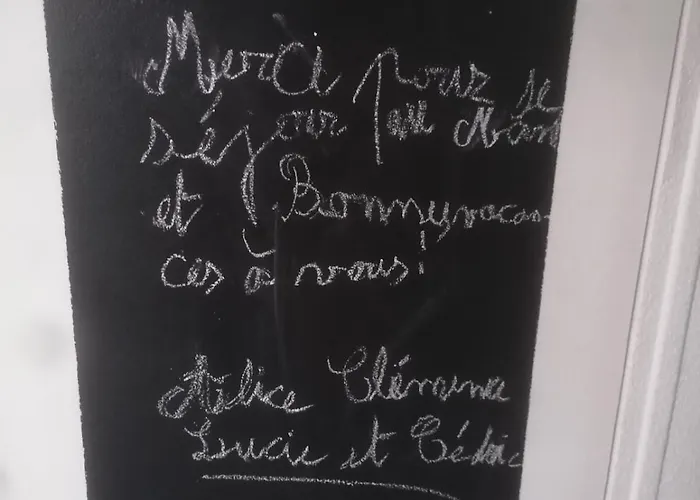 Merci pour se
séjour au Mans
et Bonnyvacan
ces a vous!
Hélice Clémence
Lucie et Cédric